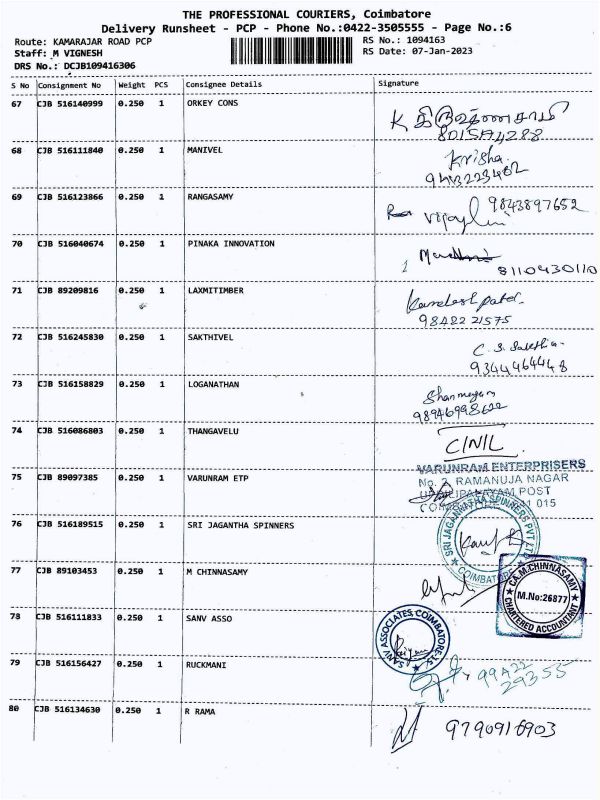 THE PROFESSIONAL COURIERS, Coimbatore
Delivery Runsheet - PCP - Phone No.:0422-3505555 - Page No.:6
Route: KAMARAJAR ROAD PCP
RS No.: 1094163
Staff: M VIGNESH
RS Date: 07-Jan-2023
DRS No.: DCJB109416306
S No Consignment No Weight PCS Consignee Details Signature
67 CJB 516140999 0.250 1 ORKEY CONS
68 CJB 516111840 0.250 1 MANIVEL
Krisha.
69 CJB 516123866 0.250 1 RANGASAMY
9843897652
70 CJB 516040674 0.250 1 PINAKA INNOVATION
8110430110
71 CJB 89209816 0.250 1 LAXMITIMBER
Kamlesh patel
98422 21575
72 CJB 516245830 0.250 1 SAKTHIVEL
C. S. Sakthi
9344464448
73 CJB 516158829 0.250 1 LOGANATHAN
Shanmugam
74 CJB 516086803 0.250 1 THANGAVELU
CINIL
75 CJB 89097385 0.250 1 VARUNRAM ETP
VARUNRAM ENTERPRISERS
No. 2, RAMANUJA NAGAR
UPPILIPALAYAM POST
COIMBATORE-641 015
76 CJB 516189515 0.250 1 SRI JAGANTHA SPINNERS
SRI JAGANNATHA SPINNERS PVT LTD
COIMBATORE
77 CJB 89103453 0.250 1 M CHINNASAMY
CA.M.CHINNASAMY
M.No:26877
CHARTERED ACCOUNTANT
78 CJB 516111833 0.250 1 SANV ASSO
SANV ASSOCIATES, COIMBATORE-15
79 CJB 516156427 0.250 1 RUCKMANI
99422
29355
80 CJB 516134630 0.250 1 R RAMA
9790916903